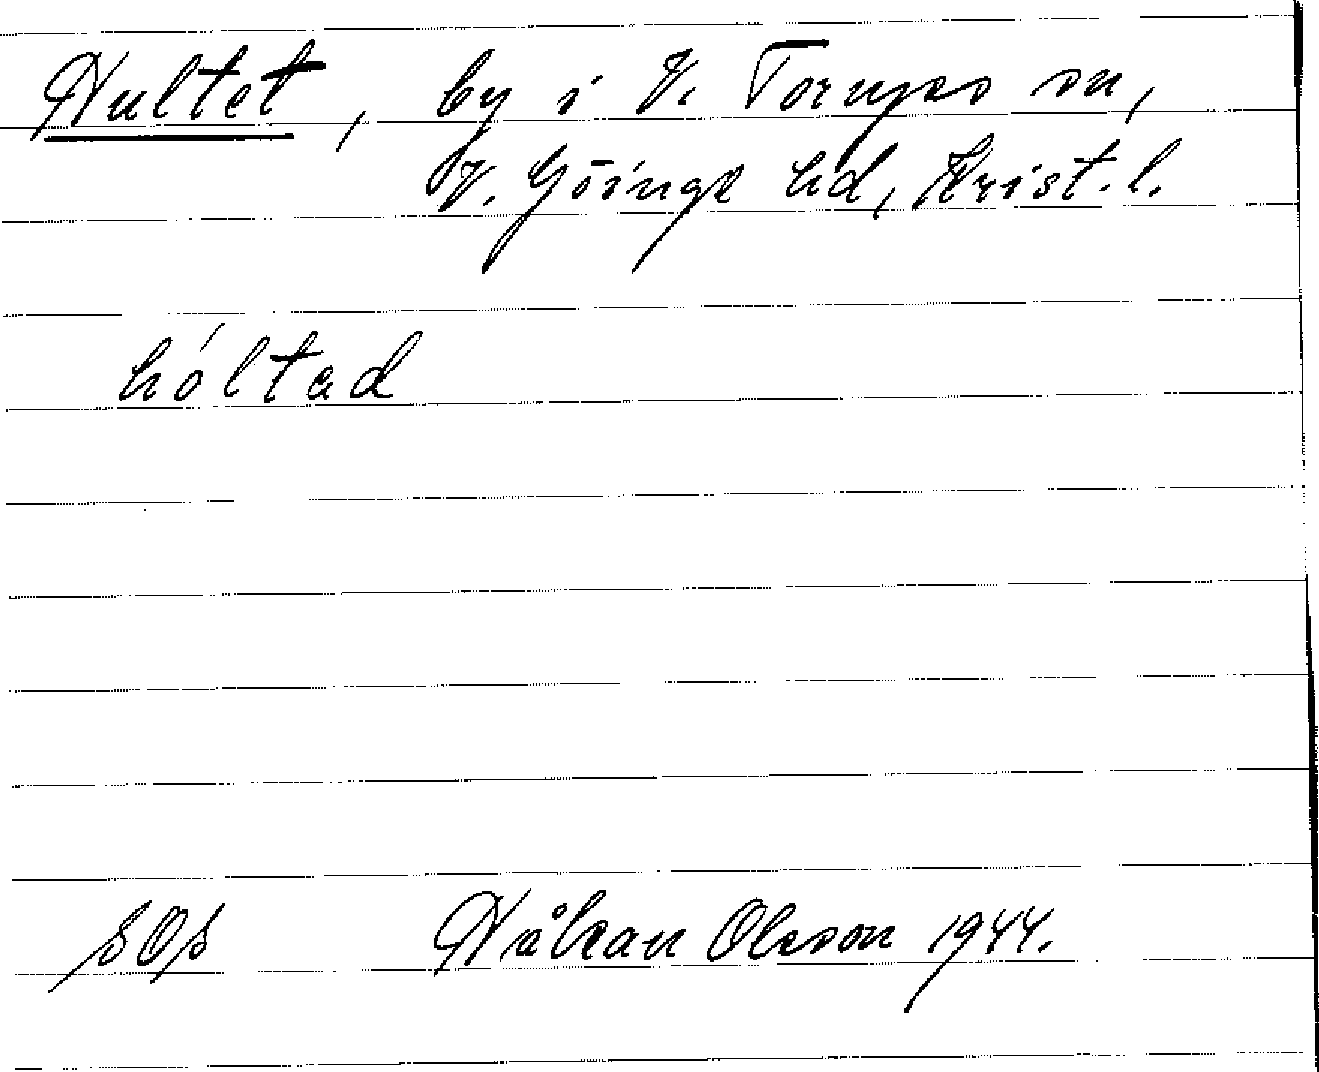 Hultet, by i V. Torups sn,
V. Göinge hd, Krist. l.
hóltad
sOs Håkan Olsson 1944.